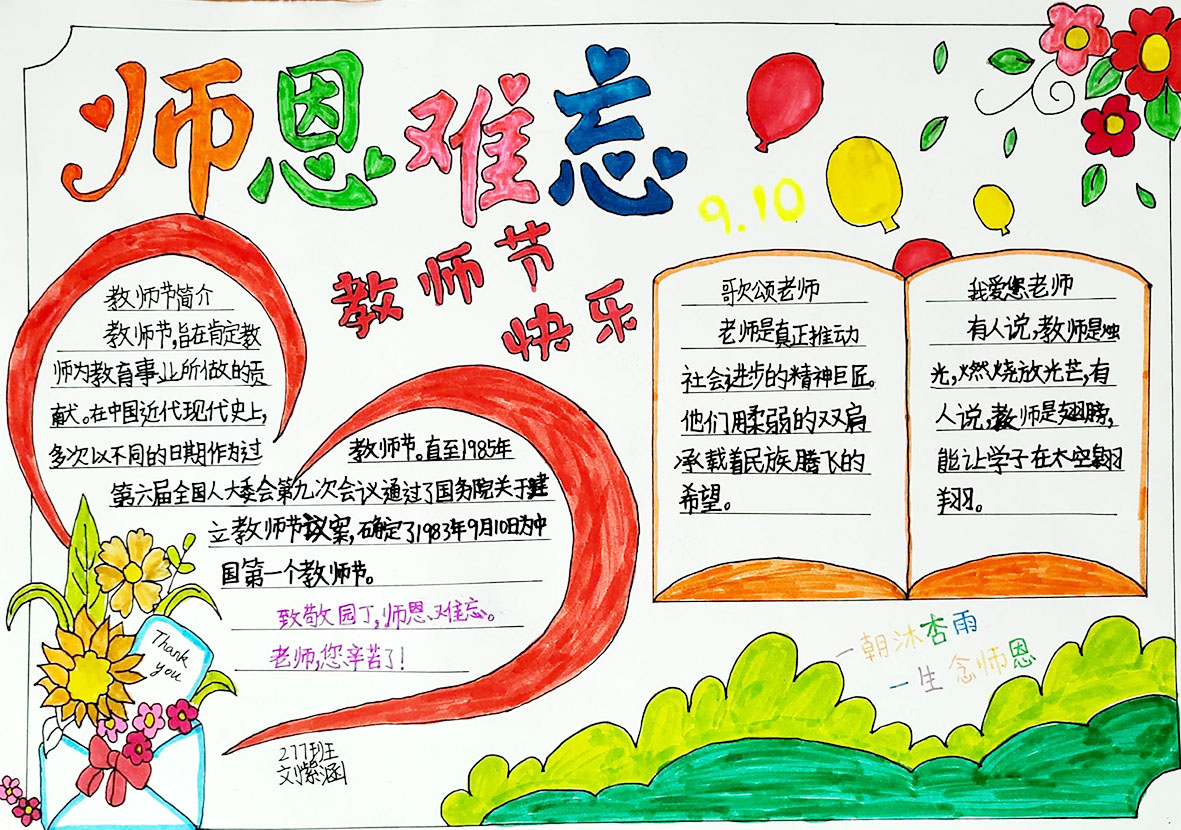 师恩难忘
9.10
教师节
快乐
教师节简介
教师节,旨在肯定教
师为教育事业所做的贡
献。在中国近代现代史上,
多次以不同的日期作为过
教师节。直至1985年
第六届全国人大委会第九次会议通过了国务院关于建
立教师节议案,确定了1983年9月10日为中
国第一个教师节。
致敬园丁,师恩难忘。
老师,您辛苦了!
Thank
you
277班
刘紫涵
歌颂老师
老师是真正推动
社会进步的精神巨匠。
他们用柔弱的双肩
承载着民族腾飞的
希望。
我爱您老师
有人说,教师是烛
光,燃烧放光芒,有
人说,教师是翅膀,
能让学子在太空翱
翔。
一朝沐杏雨
一生念师恩